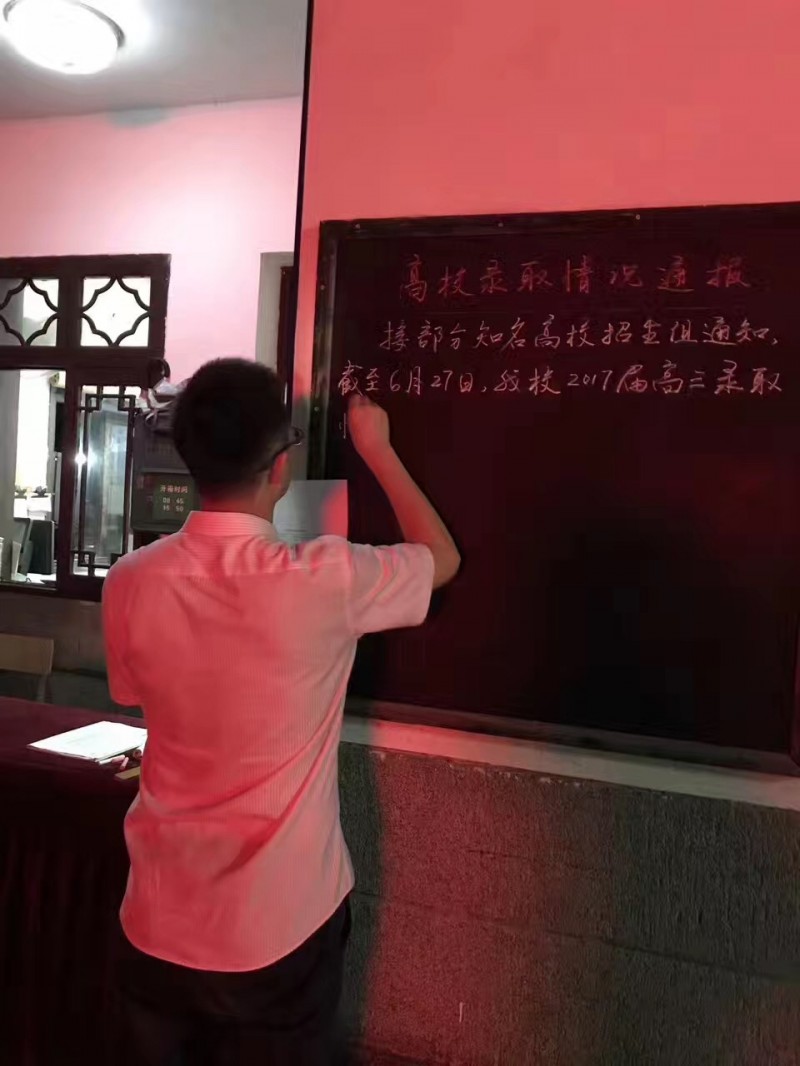 高校录取情况通报
接部分知名高校招生组通知，
截至6月27日，我校2017届高三录取